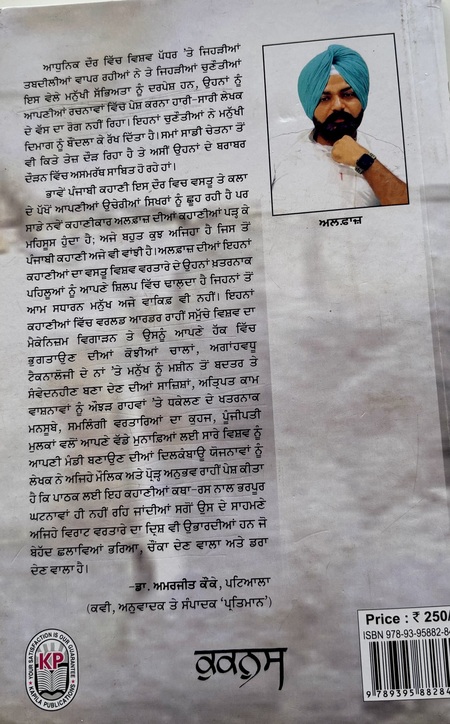 ਆਧੁਨਿਕ ਦੌਰ ਵਿੱਚ ਵਿਸ਼ਵ ਪੱਧਰ 'ਤੇ ਜਿਹੜੀਆਂ
ਤਬਦੀਲੀਆਂ ਵਾਪਰ ਰਹੀਆਂ ਨੇ ਤੇ ਜਿਹੜੀਆਂ ਚੁਣੌਤੀਆਂ
ਇਸ ਵੇਲੇ ਮਨੁੱਖੀ ਸੱਭਿਅਤਾ ਨੂੰ ਦਰਪੇਸ਼ ਹਨ, ਉਹਨਾਂ ਨੂੰ
ਆਪਣੀਆਂ ਰਚਨਾਵਾਂ ਵਿੱਚ ਪੇਸ਼ ਕਰਨਾ ਹਾਰੀ-ਸਾਰੀ ਲੇਖਕ
ਦੇ ਵੱਸ ਦਾ ਰੋਗ ਨਹੀਂ ਰਿਹਾ। ਇਹਨਾਂ ਚੁਣੌਤੀਆਂ ਨੇ ਮਨੁੱਖੀ
ਦਿਮਾਗ ਨੂੰ ਬੌਂਦਲਾ ਕੇ ਰੱਖ ਦਿੱਤਾ ਹੈ। ਸਮਾਂ ਸਾਡੀ ਚੇਤਨਾ ਤੋਂ
ਵੀ ਕਿਤੇ ਤੇਜ਼ ਦੌੜ ਰਿਹਾ ਹੈ ਤੇ ਅਸੀਂ ਉਹਨਾਂ ਦੇ ਬਰਾਬਰ
ਦੌੜਨ ਵਿੱਚ ਅਸਮਰੱਥ ਸਾਬਿਤ ਹੋ ਰਹੇ ਹਾਂ।
ਭਾਵੇਂ ਪੰਜਾਬੀ ਕਹਾਣੀ ਇਸ ਦੌਰ ਵਿਚ ਵਸਤੂ ਤੇ ਕਲਾ
ਦੇ ਪੱਖੋਂ ਆਪਣੀਆਂ ਉਚੇਰੀਆਂ ਸਿਖਰਾਂ ਨੂੰ ਛੂਹ ਰਹੀ ਹੈ ਪਰ
ਸਾਡੇ ਨਵੇਂ ਕਹਾਣੀਕਾਰ ਅਲਫ਼ਾਜ਼ ਦੀਆਂ ਕਹਾਣੀਆਂ ਪੜ੍ਹ ਕੇ
ਮਹਿਸੂਸ ਹੁੰਦਾ ਹੈ; ਅਜੇ ਬਹੁਤ ਕੁਝ ਅਜਿਹਾ ਹੈ ਜਿਸ ਤੋਂ
ਪੰਜਾਬੀ ਕਹਾਣੀ ਅਜੇ ਵੀ ਵਾਂਝੀ ਹੈ। ਅਲਫ਼ਾਜ਼ ਦੀਆਂ ਇਹਨਾਂ
ਕਹਾਣੀਆਂ ਦਾ ਵਸਤੂ ਵਿਸ਼ਵ ਵਰਤਾਰੇ ਦੇ ਉਹਨਾਂ ਖ਼ਤਰਨਾਕ
ਪਹਿਲੂਆਂ ਨੂੰ ਆਪਣੇ ਸ਼ਿਲਪ ਵਿੱਚ ਢਾਲਦਾ ਹੈ ਜਿਹਨਾਂ ਤੋਂ
ਆਮ ਸਧਾਰਨ ਮਨੁੱਖ ਅਜੇ ਵਾਕਿਫ਼ ਵੀ ਨਹੀਂ। ਇਹਨਾਂ
ਕਹਾਣੀਆਂ ਵਿੱਚ ਵਰਲਡ ਆਰਡਰ ਰਾਹੀਂ ਸਮੁੱਚੇ ਵਿਸ਼ਵ ਦਾ
ਮੈਕੇਨਿਜ਼ਮ ਵਿਗਾੜਨ ਤੇ ਉਸਨੂੰ ਆਪਣੇ ਹੱਕ ਵਿੱਚ
ਭੁਗਤਾਉਣ ਦੀਆਂ ਕੋਝੀਆਂ ਚਾਲਾਂ, ਅਗਾਂਹਵਧੂ
ਟੈਕਨਾਲੋਜੀ ਦੇ ਨਾਂ 'ਤੇ ਮਨੁੱਖ ਨੂੰ ਮਸ਼ੀਨ ਤੋਂ ਬਦਤਰ ਤੇ
ਸੰਵੇਦਨਹੀਣ ਬਣਾ ਦੇਣ ਦੀਆਂ ਸਾਜ਼ਿਸ਼ਾਂ, ਅਤ੍ਰਿਪਤ ਕਾਮ
ਵਾਸ਼ਨਾਵਾਂ ਨੂੰ ਔਝੜ ਰਾਹਵਾਂ 'ਤੇ ਧਕੇਲਣ ਦੇ ਖਤਰਨਾਕ
ਮਨਸੂਬੇ, ਸਮਲਿੰਗੀ ਵਰਤਾਰਿਆਂ ਦਾ ਕੁਹਜ, ਪੂੰਜੀਪਤੀ
ਮੁਲਕਾਂ ਵਲੋਂ ਆਪਣੇ ਵੱਡੇ ਮੁਨਾਫ਼ਿਆਂ ਲਈ ਸਾਰੇ ਵਿਸ਼ਵ ਨੂੰ
ਆਪਣੀ ਮੰਡੀ ਬਣਾਉਣ ਦੀਆਂ ਦਿਲਕੰਬਾਊ ਯੋਜਨਾਵਾਂ ਨੂੰ
ਲੇਖਕ ਨੇ ਅਜਿਹੇ ਮੌਲਿਕ ਅਤੇ ਪ੍ਰੋੜ੍ਹ ਅਨੁਭਵ ਰਾਹੀਂ ਪੇਸ਼ ਕੀਤਾ
ਹੈ ਕਿ ਪਾਠਕ ਲਈ ਇਹ ਕਹਾਣੀਆਂ ਕਥਾ-ਰਸ ਨਾਲ ਭਰਪੂਰ
ਘਟਨਾਵਾਂ ਹੀ ਨਹੀਂ ਰਹਿ ਜਾਂਦੀਆਂ ਸਗੋਂ ਉਸ ਦੇ ਸਾਹਮਣੇ
ਅਜਿਹੇ ਵਿਰਾਟ ਵਰਤਾਰੇ ਦਾ ਦ੍ਰਿਸ਼ ਵੀ ਉਭਾਰਦੀਆਂ ਹਨ ਜੋ
ਬੇਹੱਦ ਛਲਾਵਿਆਂ ਭਰਿਆ, ਚੌਂਕਾ ਦੇਣ ਵਾਲਾ ਅਤੇ ਡਰਾ
ਦੇਣ ਵਾਲਾ ਹੈ।
-ਡਾ. ਅਮਰਜੀਤ ਕੌਂਕੇ, ਪਟਿਆਲਾ
(ਕਵੀ, ਅਨੁਵਾਦਕ ਤੇ ਸੰਪਾਦਕ 'ਪ੍ਰਤਿਮਾਨ')
ਅਲਫ਼ਾਜ਼
YOUR SATISFACTION IS OUR GUARANTEE
KP
KAPILA PUBLICATIONS
ਕੁਕਨੁਸ
Price : ₹ 250/
ISBN 978-93-95882-8
9 789395 88284